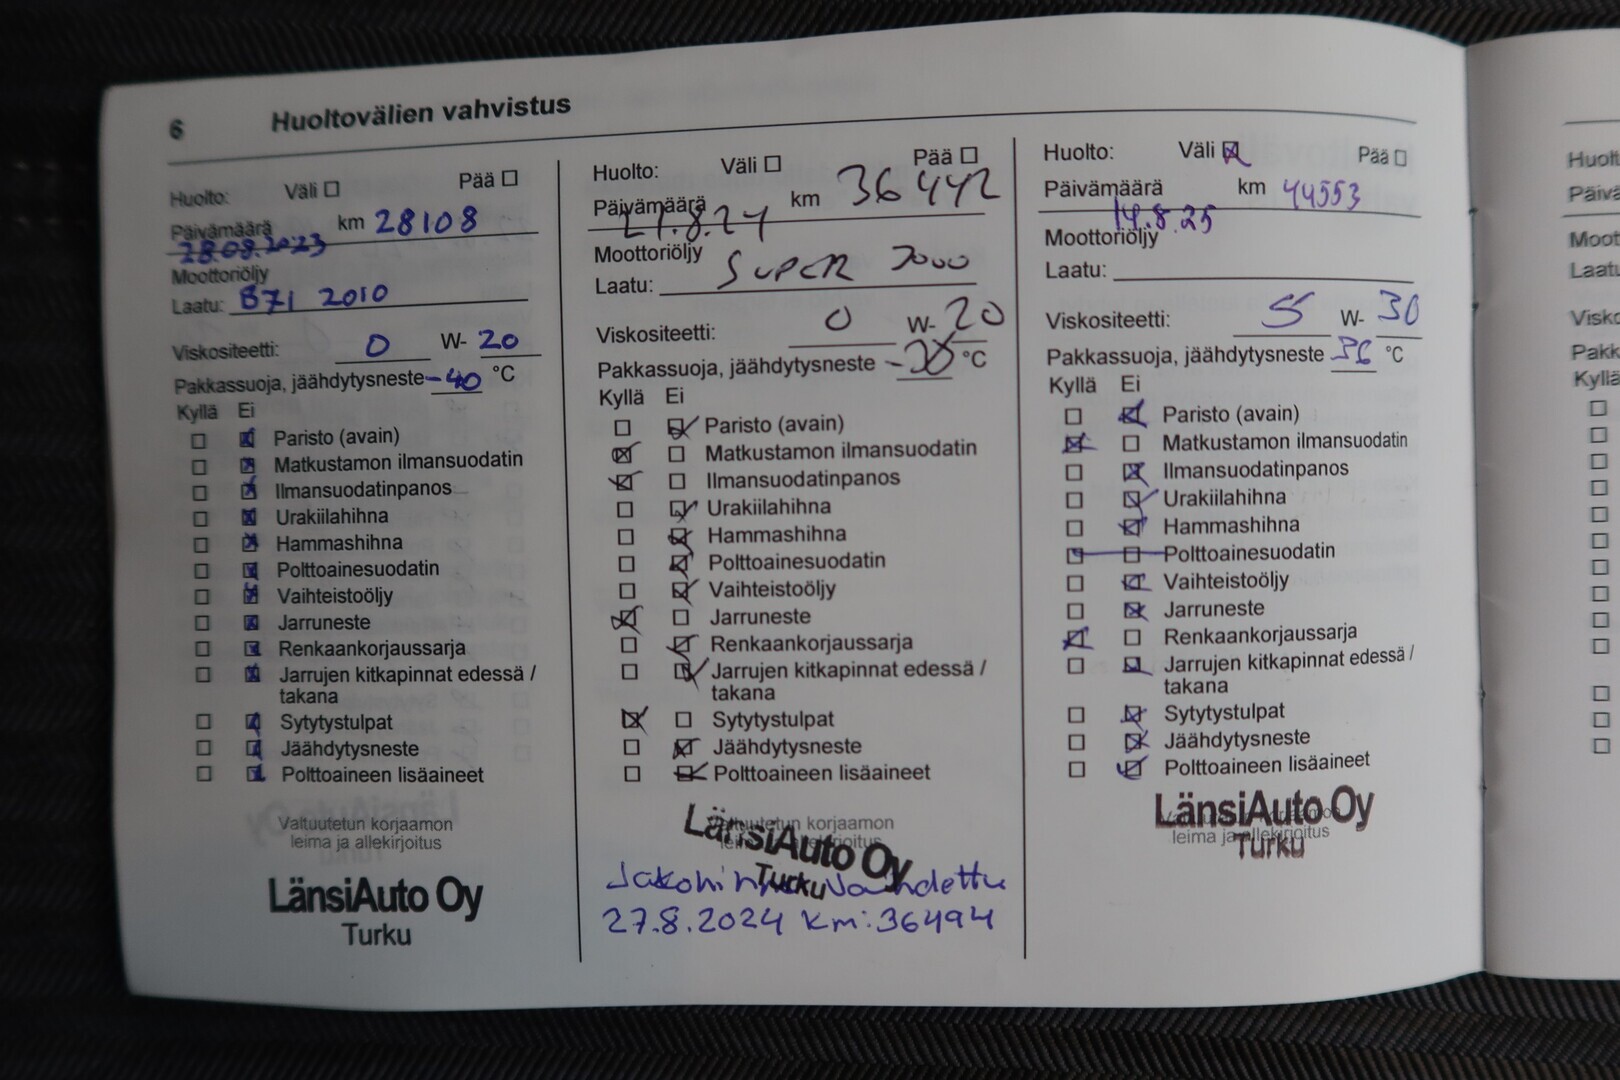 6 Huoltovälien vahvistus
Huolto: Väli Pää
Päivämäärä km 28108
28.08.2023
Moottoriöljy
Laatu: B71 2010
Viskositeetti: 0 W- 20
Pakkassuoja, jäähdytysneste -40 °C
Kyllä Ei
Paristo (avain)
Matkustamon ilmansuodatin
Ilmansuodatinpanos
Urakiilahihna
Hammashihna
Polttoainesuodatin
Vaihteistoöljy
Jarruneste
Renkaankorjaussarja
Jarrujen kitkapinnat edessä /
takana
Sytytystulpat
Jäähdytysneste
Polttoaineen lisäaineet
Valtuutetun korjaamon
leima ja allekirjoitus
LänsiAuto Oy
Turku
Huolto: Väli Pää
Päivämäärä km 36442
21.8.24
Moottoriöljy
Laatu: SUPER 3000
Viskositeetti: 0 W- 20
Pakkassuoja, jäähdytysneste °C
Kyllä Ei
Paristo (avain)
Matkustamon ilmansuodatin
Ilmansuodatinpanos
Urakiilahihna
Hammashihna
Polttoainesuodatin
Vaihteistoöljy
Jarruneste
Renkaankorjaussarja
Jarrujen kitkapinnat edessä /
takana
Sytytystulpat
Jäähdytysneste
Polttoaineen lisäaineet
Valtuutetun korjaamon
leima ja allekirjoitus
LänsiAuto Oy
Turku
Jakohihna Vaihdettu
27.8.2024 Km:36494
Huolto: Väli Pää
Päivämäärä km 44553
14.8.25
Moottoriöljy
Laatu:
Viskositeetti: 5 W- 30
Pakkassuoja, jäähdytysneste 36 °C
Kyllä Ei
Paristo (avain)
Matkustamon ilmansuodatin
Ilmansuodatinpanos
Urakiilahihna
Hammashihna
Polttoainesuodatin
Vaihteistoöljy
Jarruneste
Renkaankorjaussarja
Jarrujen kitkapinnat edessä /
takana
Sytytystulpat
Jäähdytysneste
Polttoaineen lisäaineet
Valtuutetun korjaamon
leima ja allekirjoitus
LänsiAuto Oy
Turku